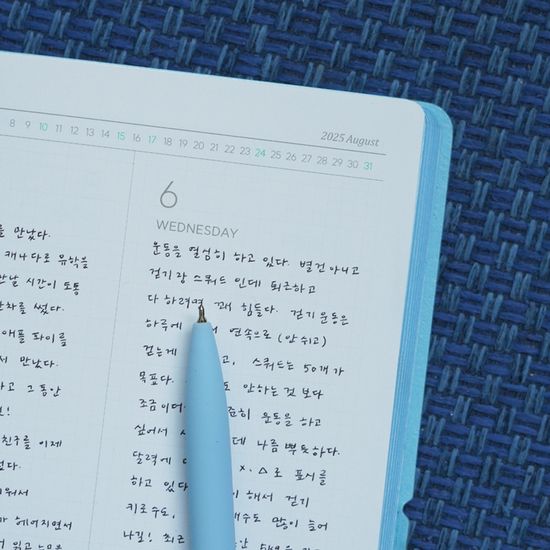 2025 August
8 9 10 11 12 13 14 15 16 17 18 19 20 21 22 23 24 25 26 27 28 29 30 31
를 만났다.
캐나다로 유학을
만날 시간이 도통
차를 썼다.
애플 파이를
서 만났다.
하고 그동안
친구를 이제
가 헤어지면서
6
WEDNESDAY
운동을 열심히 하고 있다. 별건 아니고
걷기랑 스쿼드 인데 퇴근하고
다 하려면 꽤 힘들다. 걷기운동은
하루에 연속으로 (안 쉬고)
걷는게 고, 스쿼드는 50개가
목표다. 도 안하는 것 보다
조금이 히 운동을 하고
싶어서 데 나름 뿌듯하다.
달력에 x, △로 표시를
하고 있다 해서 걷기
키로수도, 수도 많이 늘어
나길! 최근